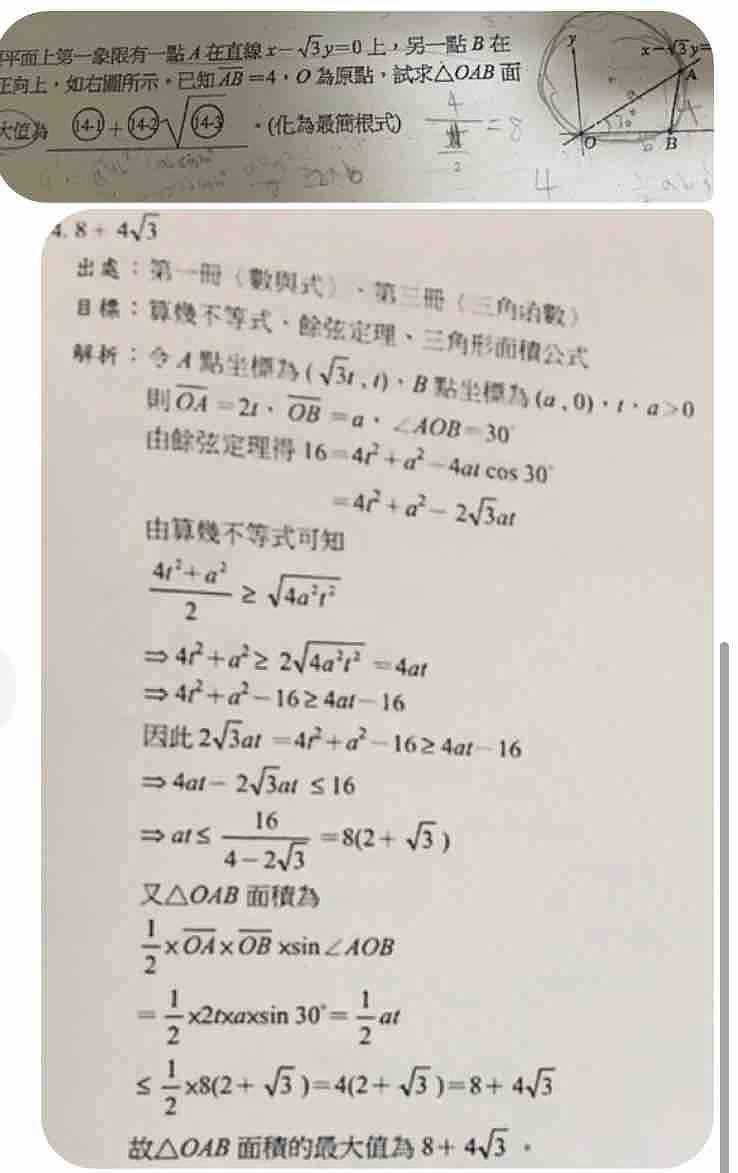 平面上第一象限有一點 A 在直線 x−√3y=0 上，另一點 B 在
正向上，如右圖所示。已知 AB=4，O 為原點，試求△OAB 面
大值為 (14-1)+(14-2)√(14-3) 。(化為最簡根式)
y
x−√3y=
A
O
B
30°
b
4
= 8
2
4
4. 8+4√3
出處：第一冊〈數與式〉、第三冊〈三角函數〉
目標：算幾不等式、餘弦定理、三角形面積公式
解析：令 A 點坐標為 (√3t , t)，B 點坐標為 (a , 0)，t，a>0
則 OA=2t，OB=a，∠AOB=30°
由餘弦定理得 16=4t²+a²−4at cos 30°
=4t²+a²−2√3at
由算幾不等式可知
(4t²+a²)/2 ≥ √(4a²t²)
⇒ 4t²+a² ≥ 2√(4a²t²) =4at
⇒ 4t²+a²−16 ≥ 4at−16
因此 2√3at =4t²+a²−16 ≥ 4at−16
⇒ 4at−2√3at ≤ 16
⇒ at ≤ 16/(4−2√3) =8(2+√3)
又△OAB 面積為
1/2×OA×OB×sin∠AOB
=1/2×2t×a×sin 30°=1/2at
≤ 1/2×8(2+√3)=4(2+√3)=8+4√3
故△OAB 面積的最大值為 8+4√3 。